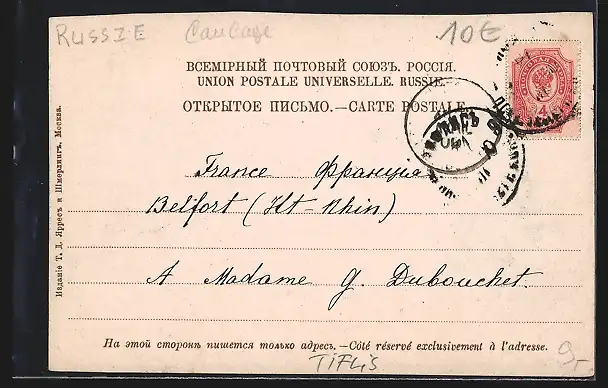 RUSSIE Caucase 10€
ВСЕМІРНЫЙ ПОЧТОВЫЙ СОЮЗЪ. РОССІЯ.
UNION POSTALE UNIVERSELLE. RUSSIE.
ОТКРЫТОЕ ПИСЬМО.—CARTE POSTALE.
France Франция
Belfort (Ht-Rhin)
A Madame G. Dubouchet.
На этой сторонѣ пишется только адресъ.—Côté réservé exclusivement à l'adresse.
TIFLIS
9.-
Изданіе Т. Д. Ярресъ и Шмерлингъ, Москва.